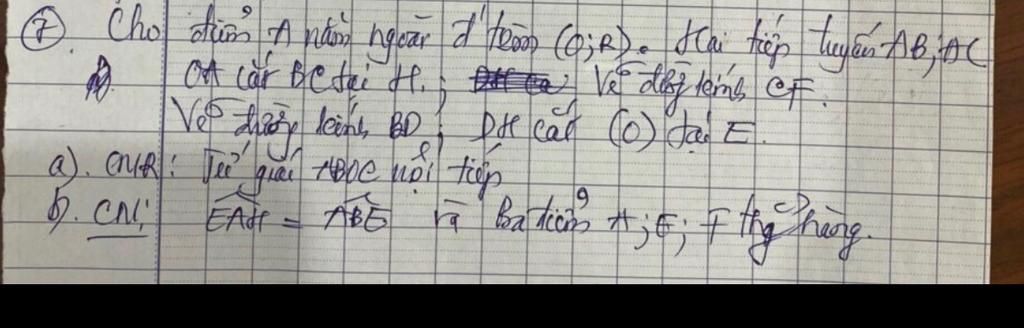 ⑦. Cho điểm A nằm ngoài đ' tròn (O;R). Hai tiếp tuyến AB; AC
OA cắt BC tại H.; Vẽ đg kính CF.
Vẽ đường kính BD; DH cắt (O) tại E.
a). CMR: Tứ giác ABOC nội tiếp
b). CM: EAH = ABE và Ba điểm A; E; F thg hàng.